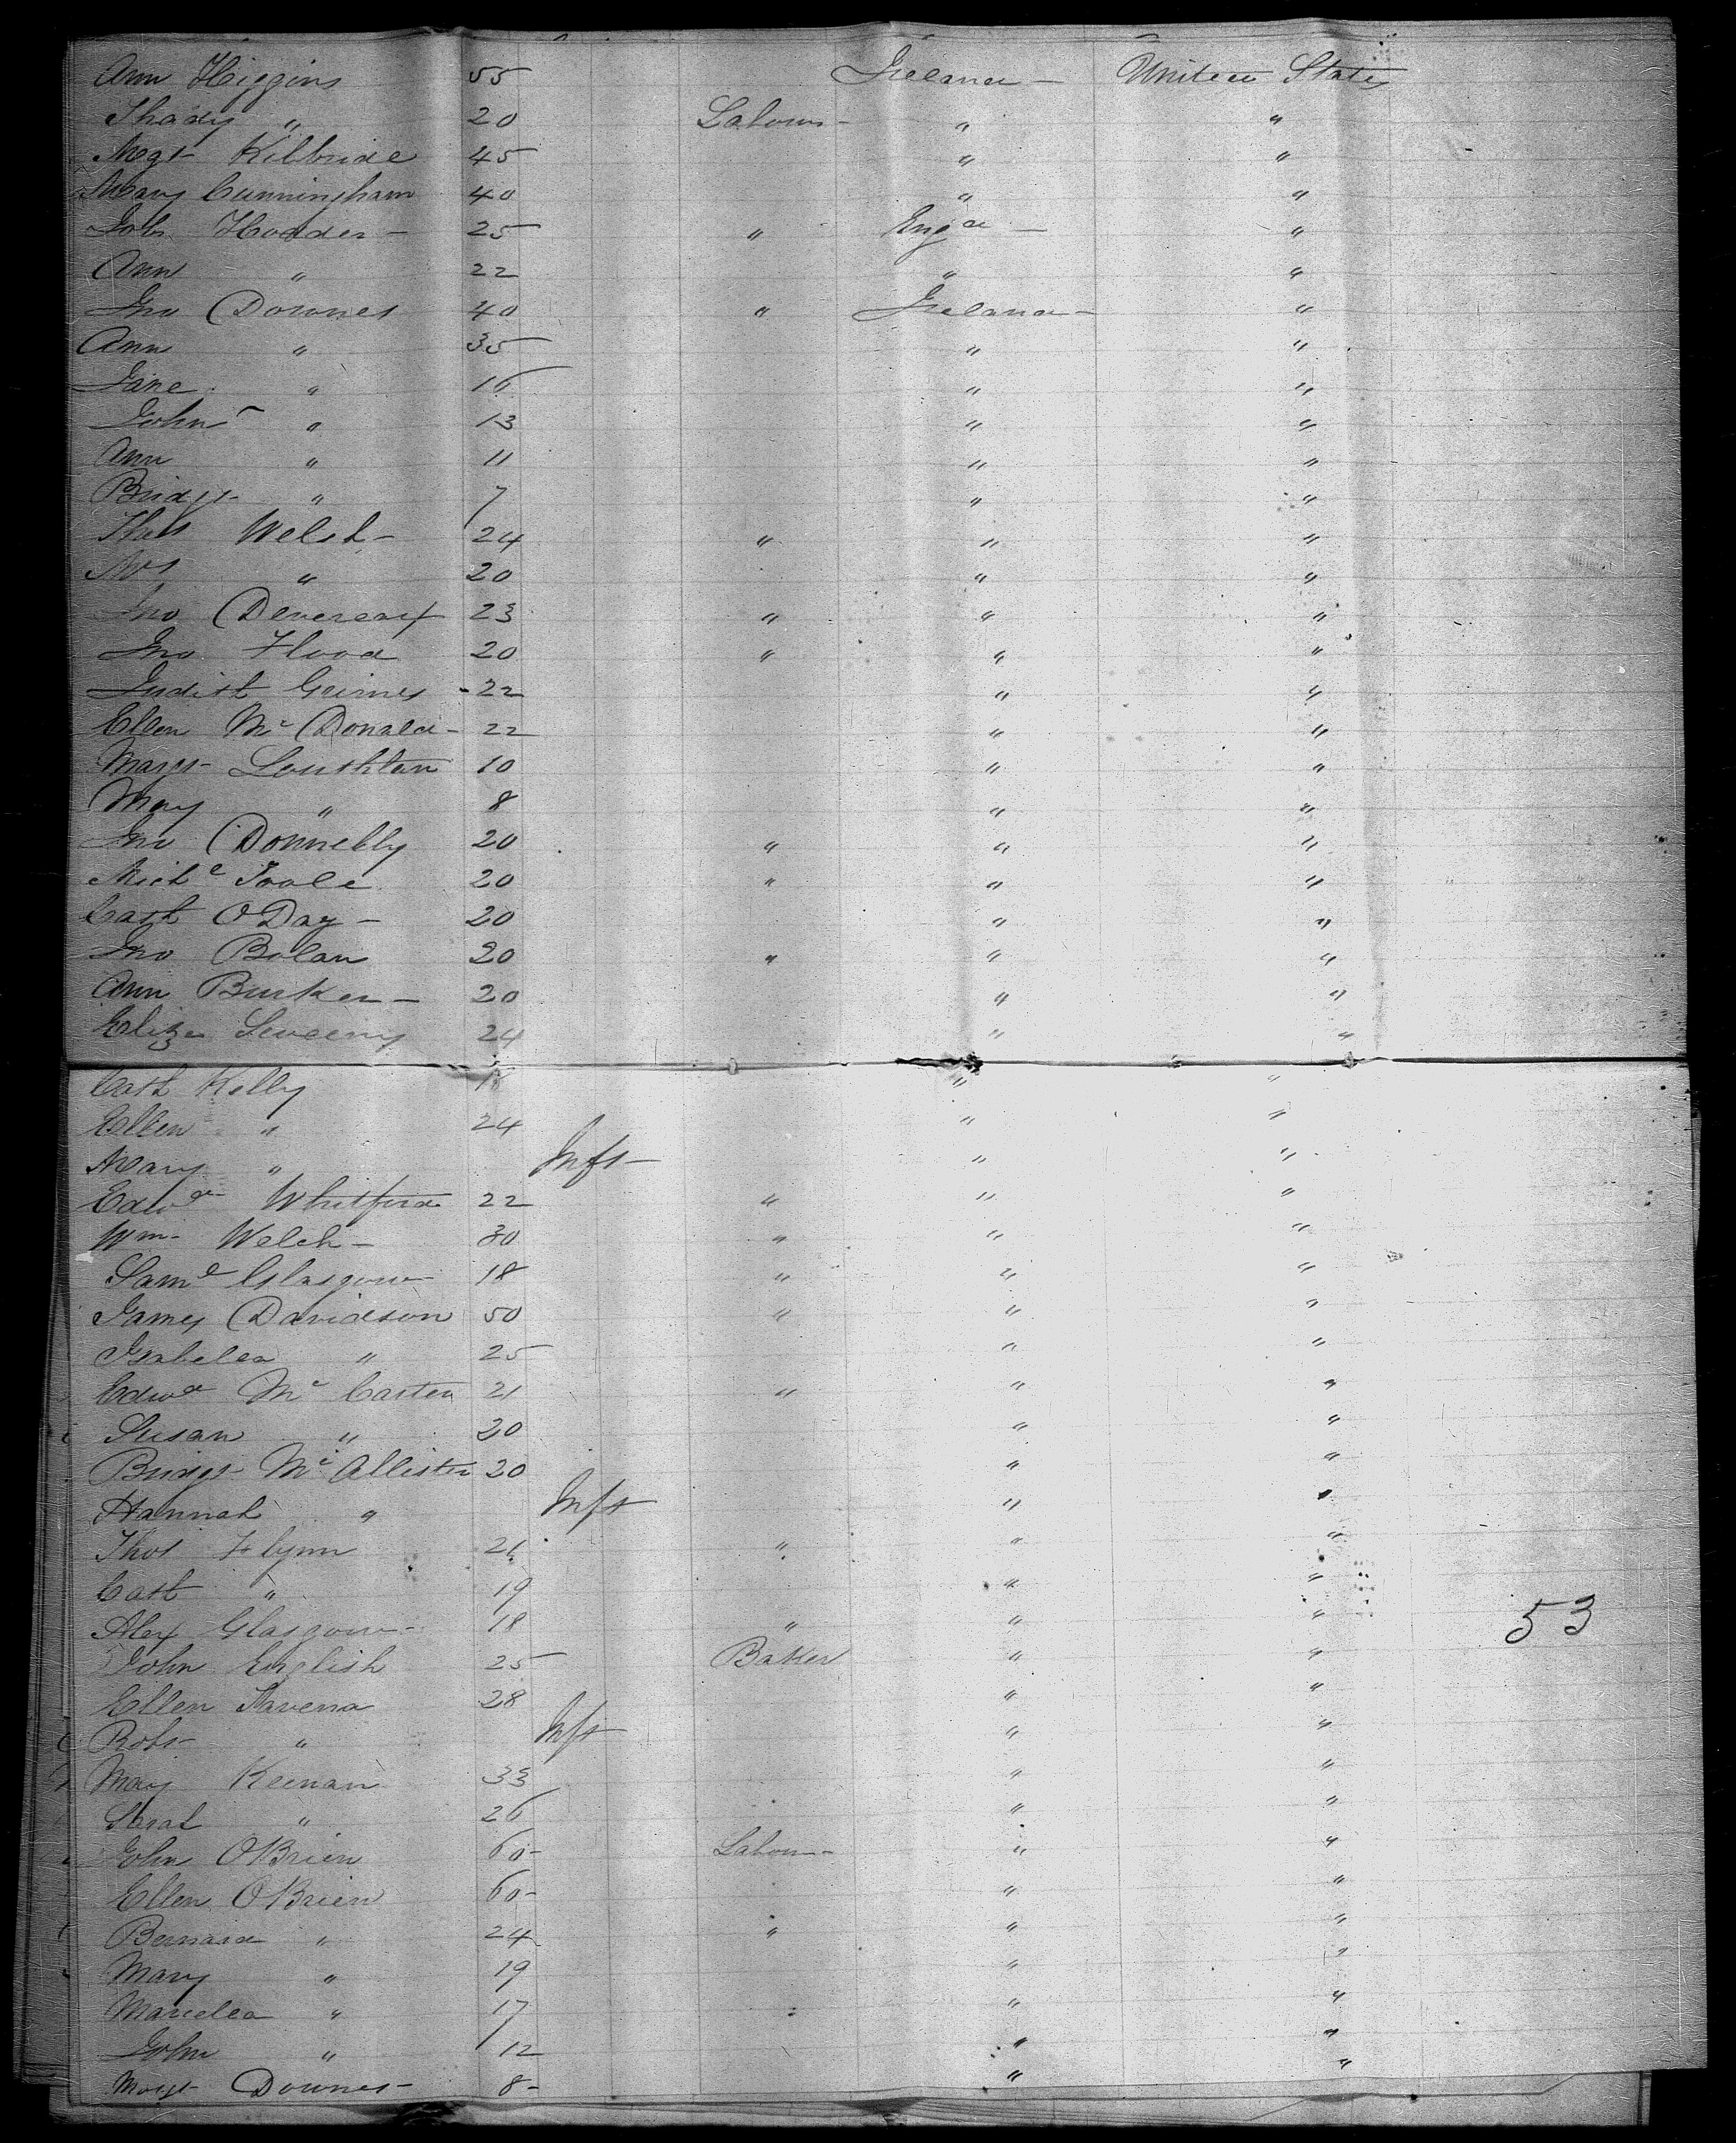 Ann Higgins 55 Ireland - United States
Thady " 20 Labour - " "
Mgt Kilbride 45 " "
Mary Cunningham 40 " "
Hodder - 25 " Engd - "
Ann " 22 " "
Jno Downes 40 " Ireland - "
Ann " 35 " "
Jane " 16 " "
John " 13 " "
Ann " 11 " "
Bridgt " 7 " "
Thos Welsh - 24 " " "
" 20 " "
Jno Devereaux 23 " " "
Jno Flood 20 " " "
Judith Grimes - 22 " "
Ellen Mc Donald - 22 " "
Margt Loushlan 10 " "
Mary " 8 " "
Jno Donnelly 20 " " "
Michl Toole 20 " " "
Cath O Day - 20 " "
Jno Bolan 20 " " "
Ann Burke - 20 " "
Eliza Sweeny 24 " "
Cath Kelly 18 " "
Ellen " 24 " "
Mary " Inft - " "
Edwd Whitford 22 " " "
Wm Welch - 30 " " "
Saml Glasgow 18 " " "
James Davidson 50 " " "
Isabella " 25 " "
Edwd Mc Carten 21 " " "
Susan " 20 " "
Bridgt Mc Allister 20 " "
Hannah " Inft " "
Thos Flynn 21 " " "
Cath " 19 " "
Alex Glasgow - 18 " " "
53
John English 25 Baker " "
Ellen 28 " "
Robt " Inft " "
Mary Keenan 33 " "
Sarah " 26 " "
John OBrien 60 - Labour - " "
Ellen OBrien 60 - " "
Bernard " 24 " " "
Mary " 19 " "
Marcella " 17 " " "
John " 12 " "
Margt Downes - 8 - " "